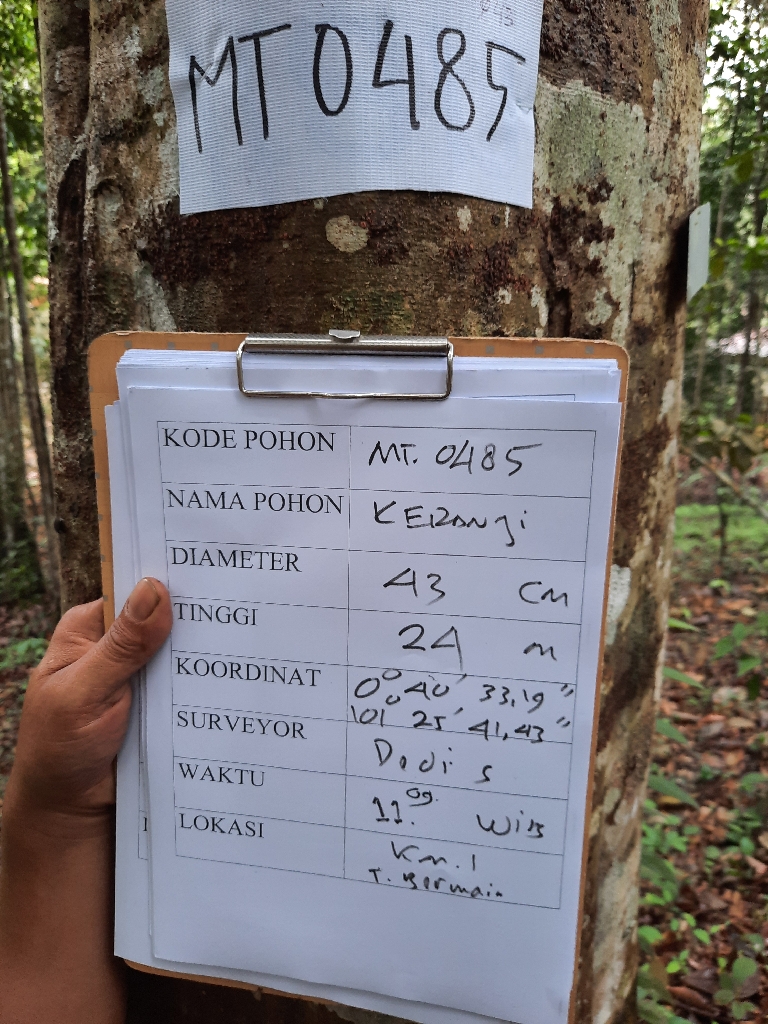 MT0485
KODE POHON MT. 0485
NAMA POHON KERANJI
DIAMETER 43 cm
TINGGI 24 m
KOORDINAT 0° 40' 33,19"
101° 25' 41,43"
SURVEYOR Dodi S
WAKTU 11.09. WIB
LOKASI Km. 1
T. Bermain